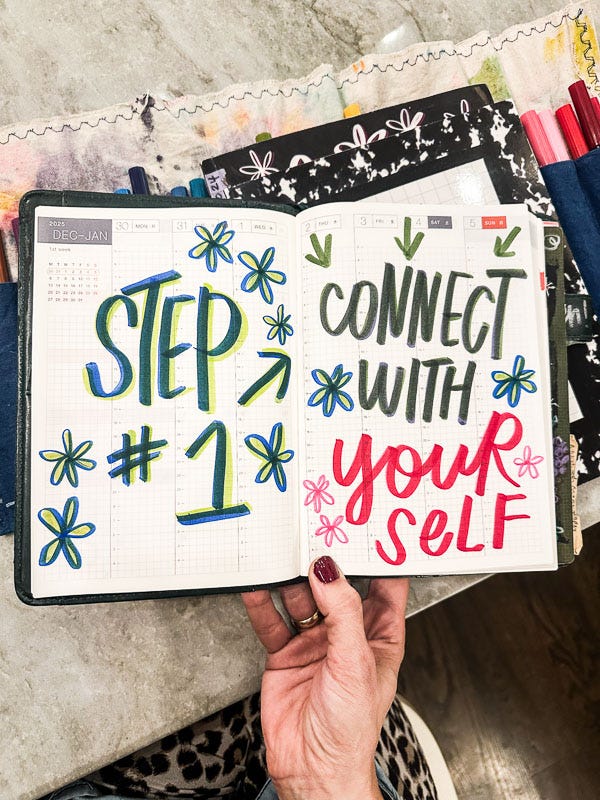 2025
DEC-JAN
1st week
M T W T F S S
30 MON
31
1 WED
STEP
#1
2 THU
3 FRI
4 SAT
5 SUN
CONNECT
WITH
YOUR
SELF